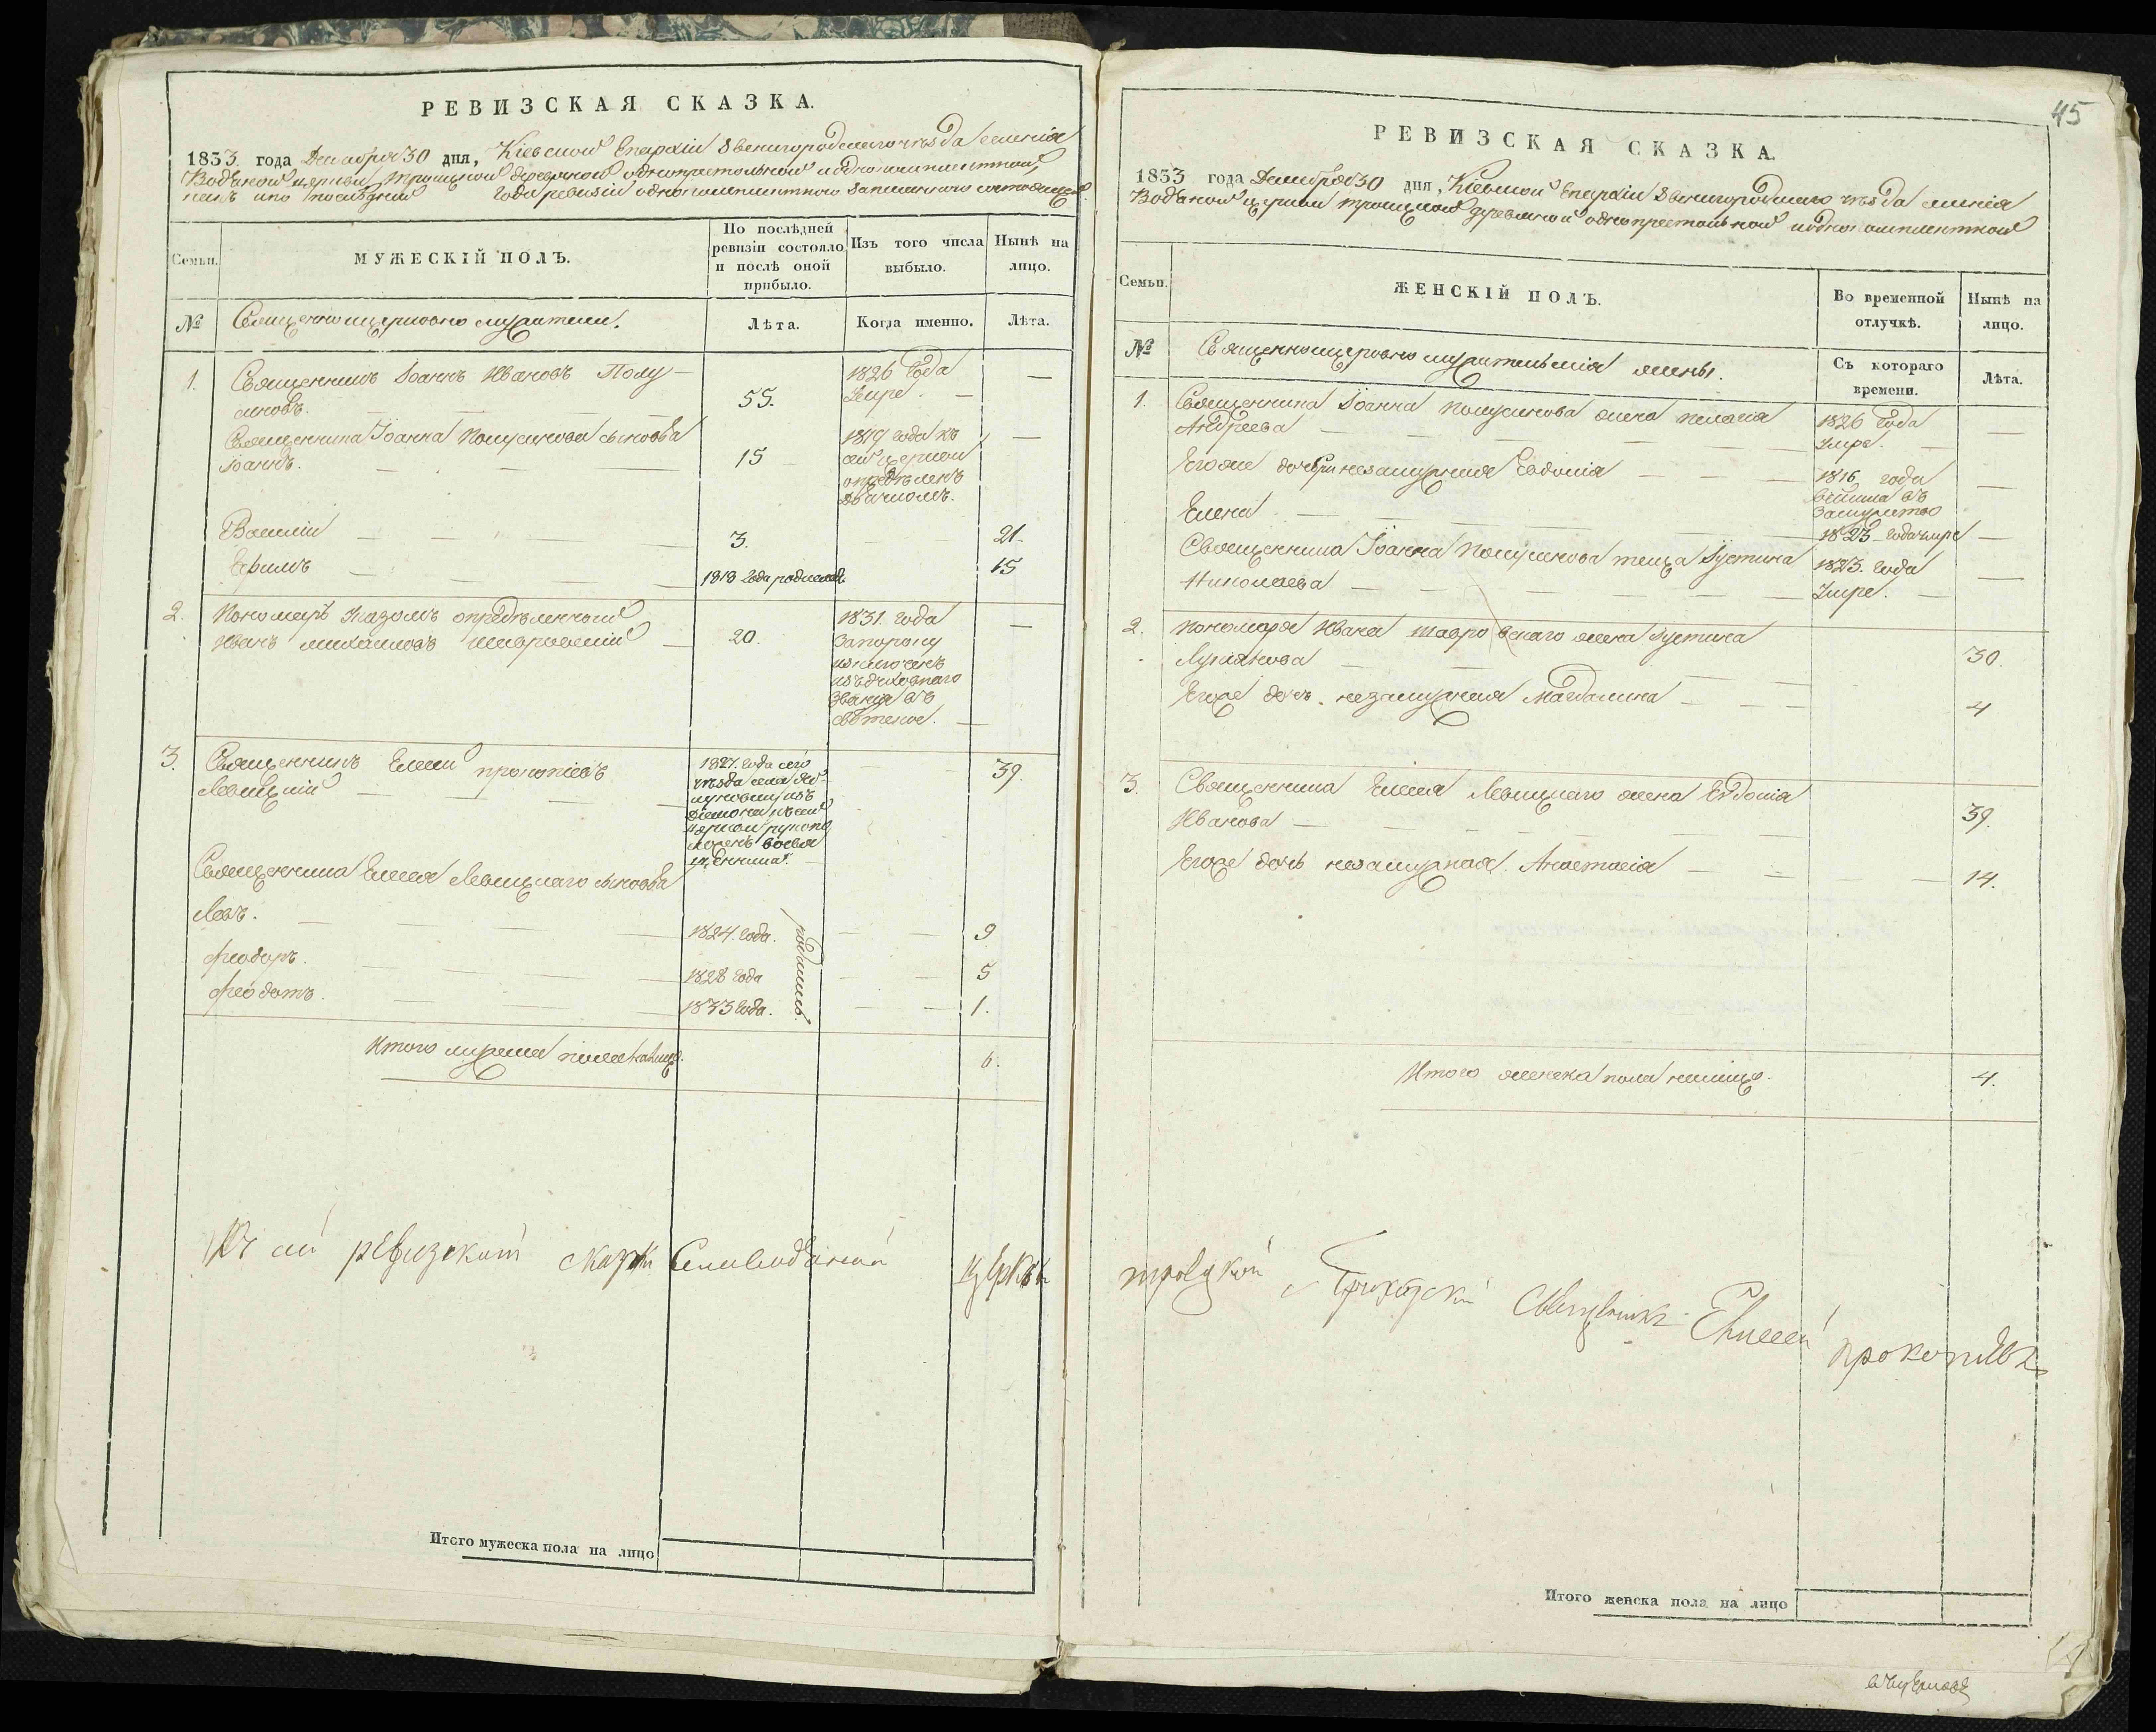 РЕВИЗСКАЯ СКАЗКА.
1833. года Декабря 30 дня, Кіевской Епархіи Звенигородскаго уѣзда селенія
Водяной церкви Троицкой деревяной однопрестольной и однокомплектной,
нынѣ и по послѣдней года ревизіи однокомплектного записанного состоящей.
Семьи.
МУЖЕСКІЙ ПОЛЪ.
По послѣдней ревизіи состояло и послѣ оной прибыло.
Изъ того числа выбыло.
Нынѣ на лицо.
№
Священноцерковнослужители.
Лѣта.
Когда именно.
Лѣта.
1. Священникъ Іоаннъ Ивановъ
55.
1826 года
умре.
Священника Іоанна сыновья
Іоаннъ.
15
1819 года къ
сей церкви
опредѣленъ
дьячкомъ.
Василій 3. 21
Ефимъ 1818 года родился 15
2. Пономарь указомъ опредѣленный
Иванъ Михайловъ
20.
1831. года
за пороки
исключенъ
изъ духовнаго
званія въ
свѣтское.
3. Священникъ Елисей Прокопіевъ
Левицкій
1827. года сего
уѣзда села
изъ
діакона къ сей
церкви рукопо
ложенъ во свя
щенника.
39.
Священника Елисея Левицкаго сыновья
Левъ. 1824. года. 9
Феодоръ. 1828 года 5
Феодотъ. 1833 года. 1.
родились.
Итого мужеска пола на лицо. 6.
Къ сей ревизской сказки Села Водяной церкви
Итого мужеска пола на лицо
45
РЕВИЗСКАЯ СКАЗКА.
1833 года Декабря 30 дня, Кіевской Епархіи Звенигородскаго уѣзда селенія
Водяной церкви Троицкой деревяной однопрестольной и однокомплектной
Семьи.
ЖЕНСКІЙ ПОЛЪ.
Во временной отлучкѣ.
Нынѣ на лицо.
№
Священноцерковнослужительскія жены.
Съ котораго времени.
Лѣта.
1. Священника Іоанна жена Пелагія
Андреева
1826 года
умре.
Егоже дочери незамужнія Евдокія
1816 года
вышла въ
замужство
Елена 1823 года умре
Священника Іоанна теща Іустина
Николаева
1823. года
умре.
2. Пономаря Ивана жена Іустина
Лукіянова 30.
Егоже дочь незамужняя Магдалина 4
3. Священника Елисея Левицкаго жена Евдокія
Иванова 39.
Егоже дочь незамужняя Анастасія 14.
Итого женска пола на лицо. 4.
троицкой Приходскій Священникъ Елисей Прокопіевъ
Итого женска пола на лицо